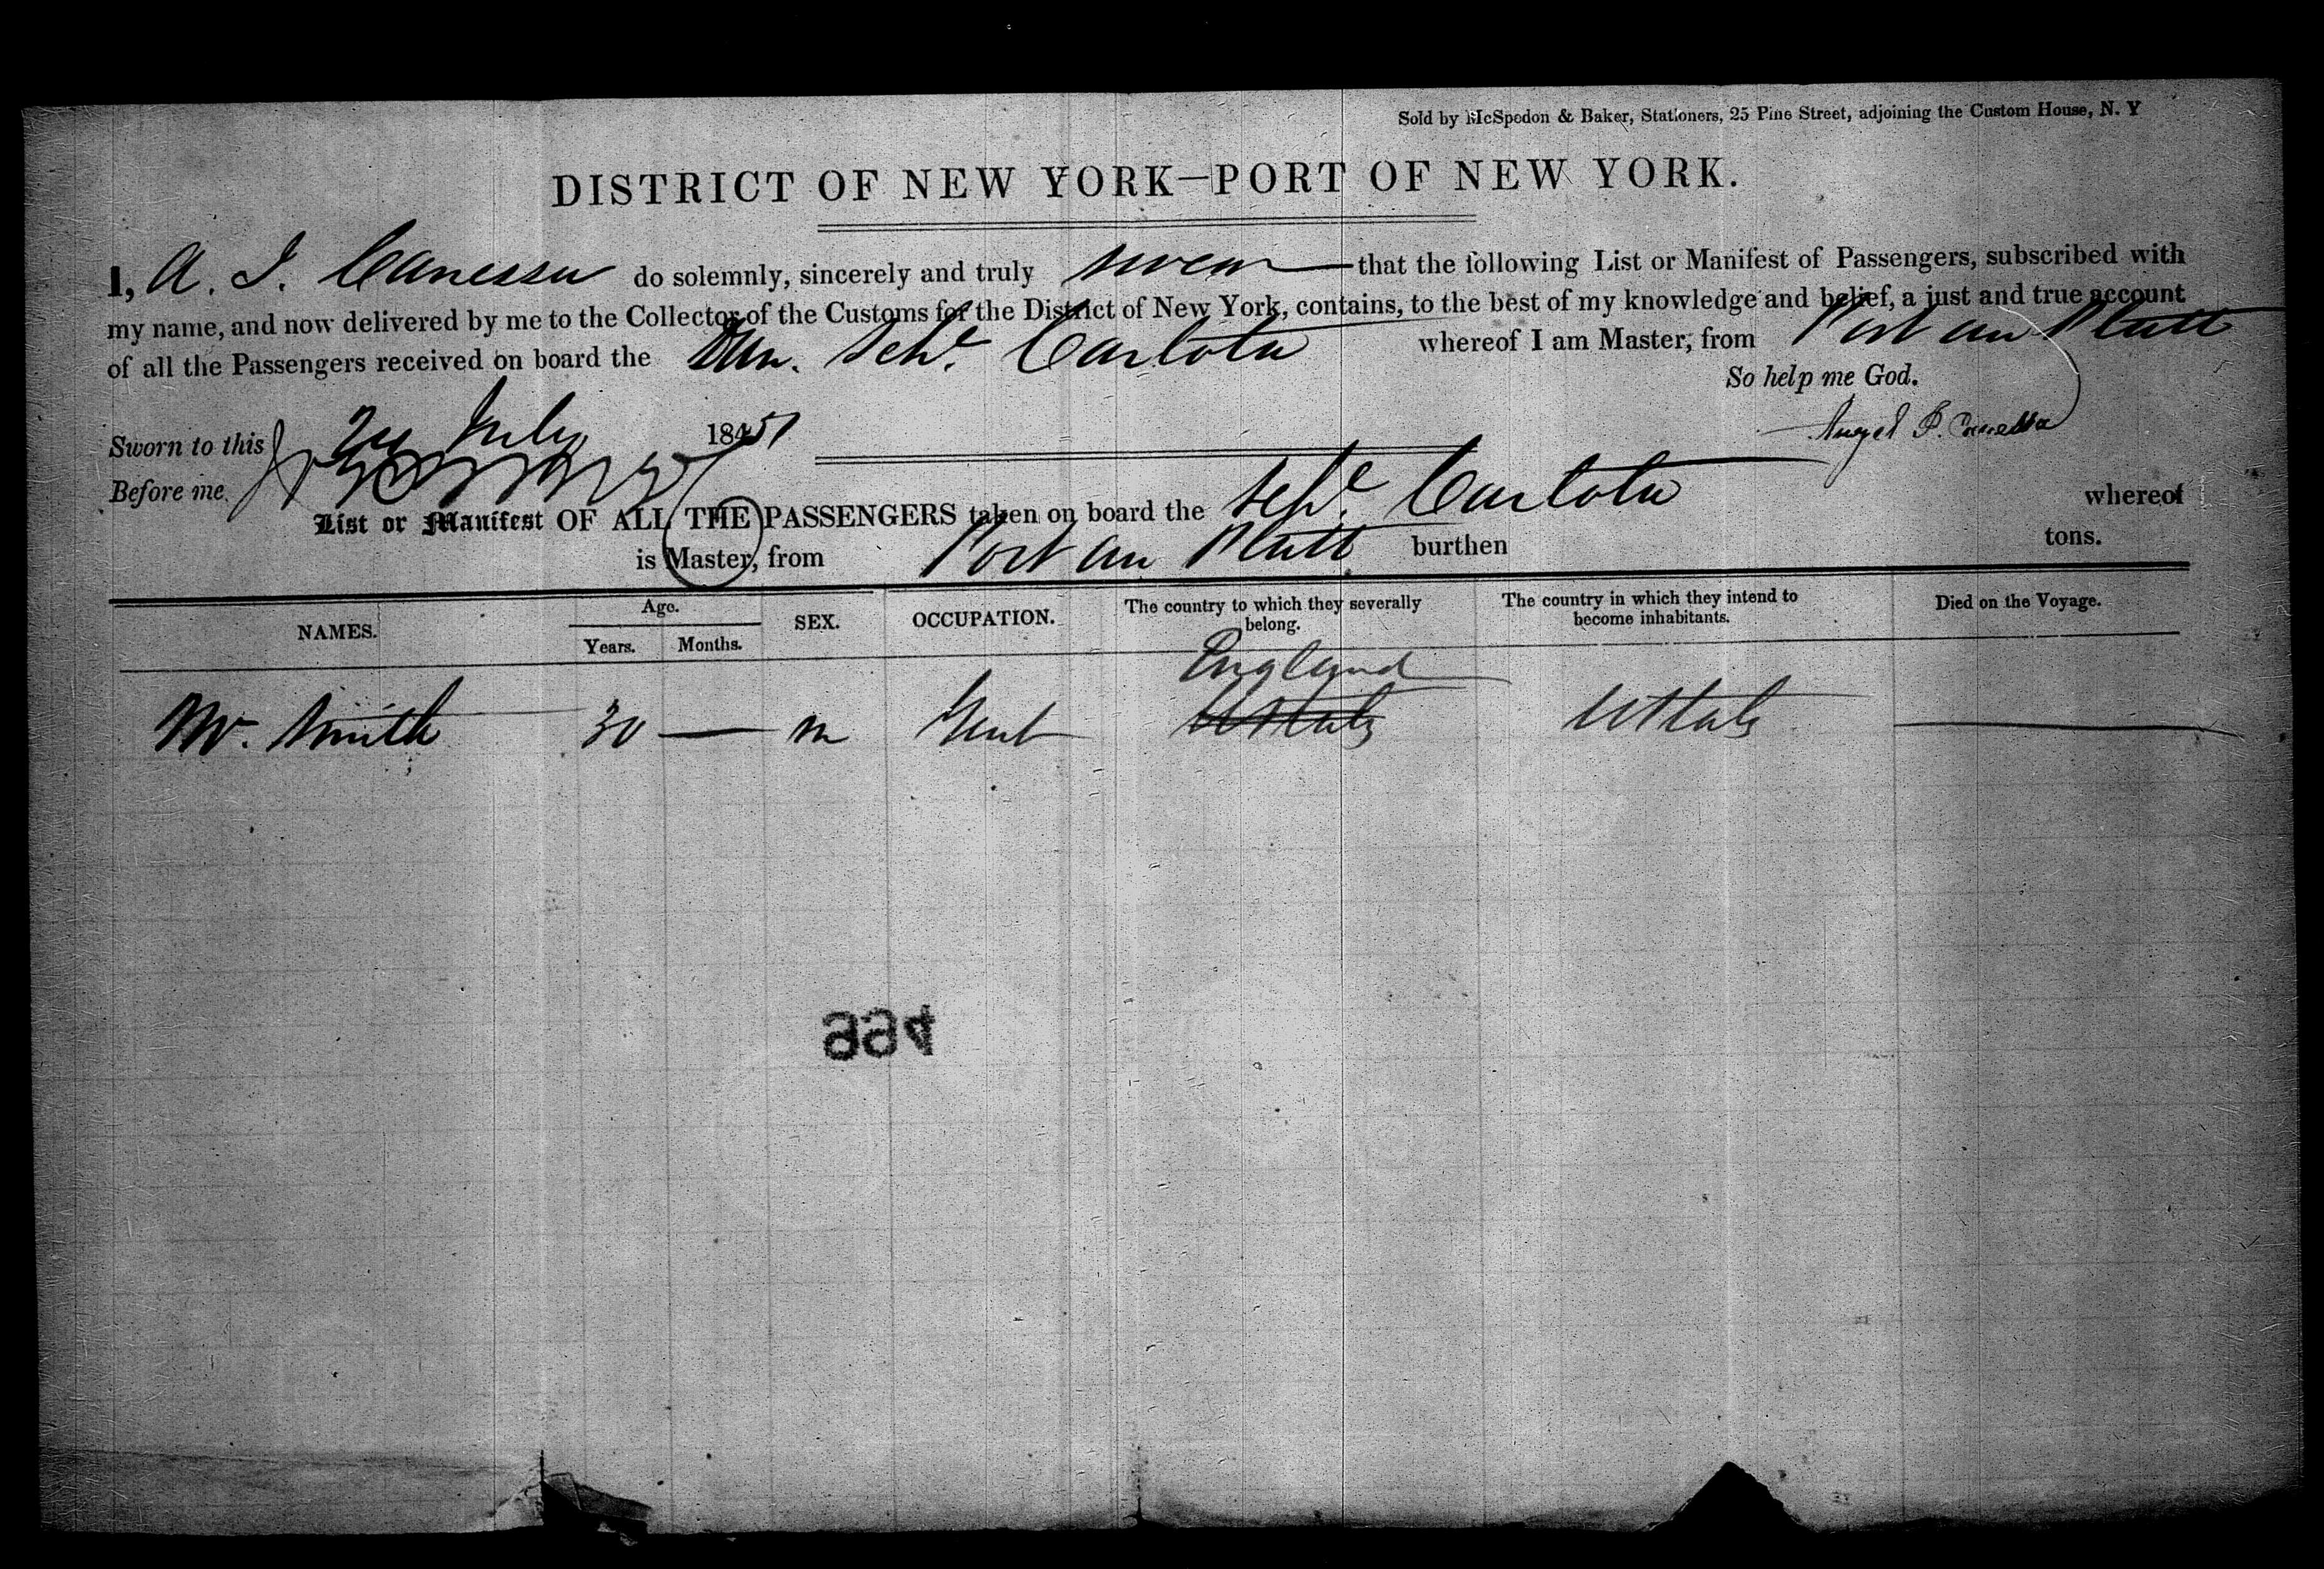 Sold by McSpedon & Baker, Stationers, 25 Pine Street, adjoining the Custom House, N. Y
DISTRICT OF NEW YORK—PORT OF NEW YORK.
I, A. J. Canessa do solemnly, sincerely and truly swear that the following List or Manifest of Passengers, subscribed with
my name, and now delivered by me to the Collector of the Customs for the District of New York, contains, to the best of my knowledge and belief, a just and true account
of all the Passengers received on board the Schr. Carlota whereof I am Master, from Port au Platt
So help me God.
Sworn to this 24 July 1851
Angel J. Canessa
Before me,
List or Manifest OF ALL THE PASSENGERS taken on board the Schr. Carlota whereof
is Master, from Port au Platt burthen tons.
NAMES. Age. Years. Months. SEX. OCCUPATION. The country to which they severally belong. The country in which they intend to become inhabitants. Died on the Voyage.
England
Mr. Smith 30 — m Gent UStates UStates
664